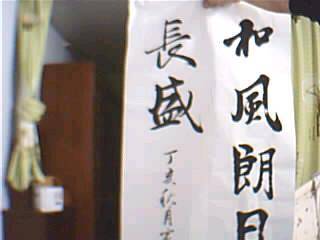 和風朗日
長盛
丁亥秋月